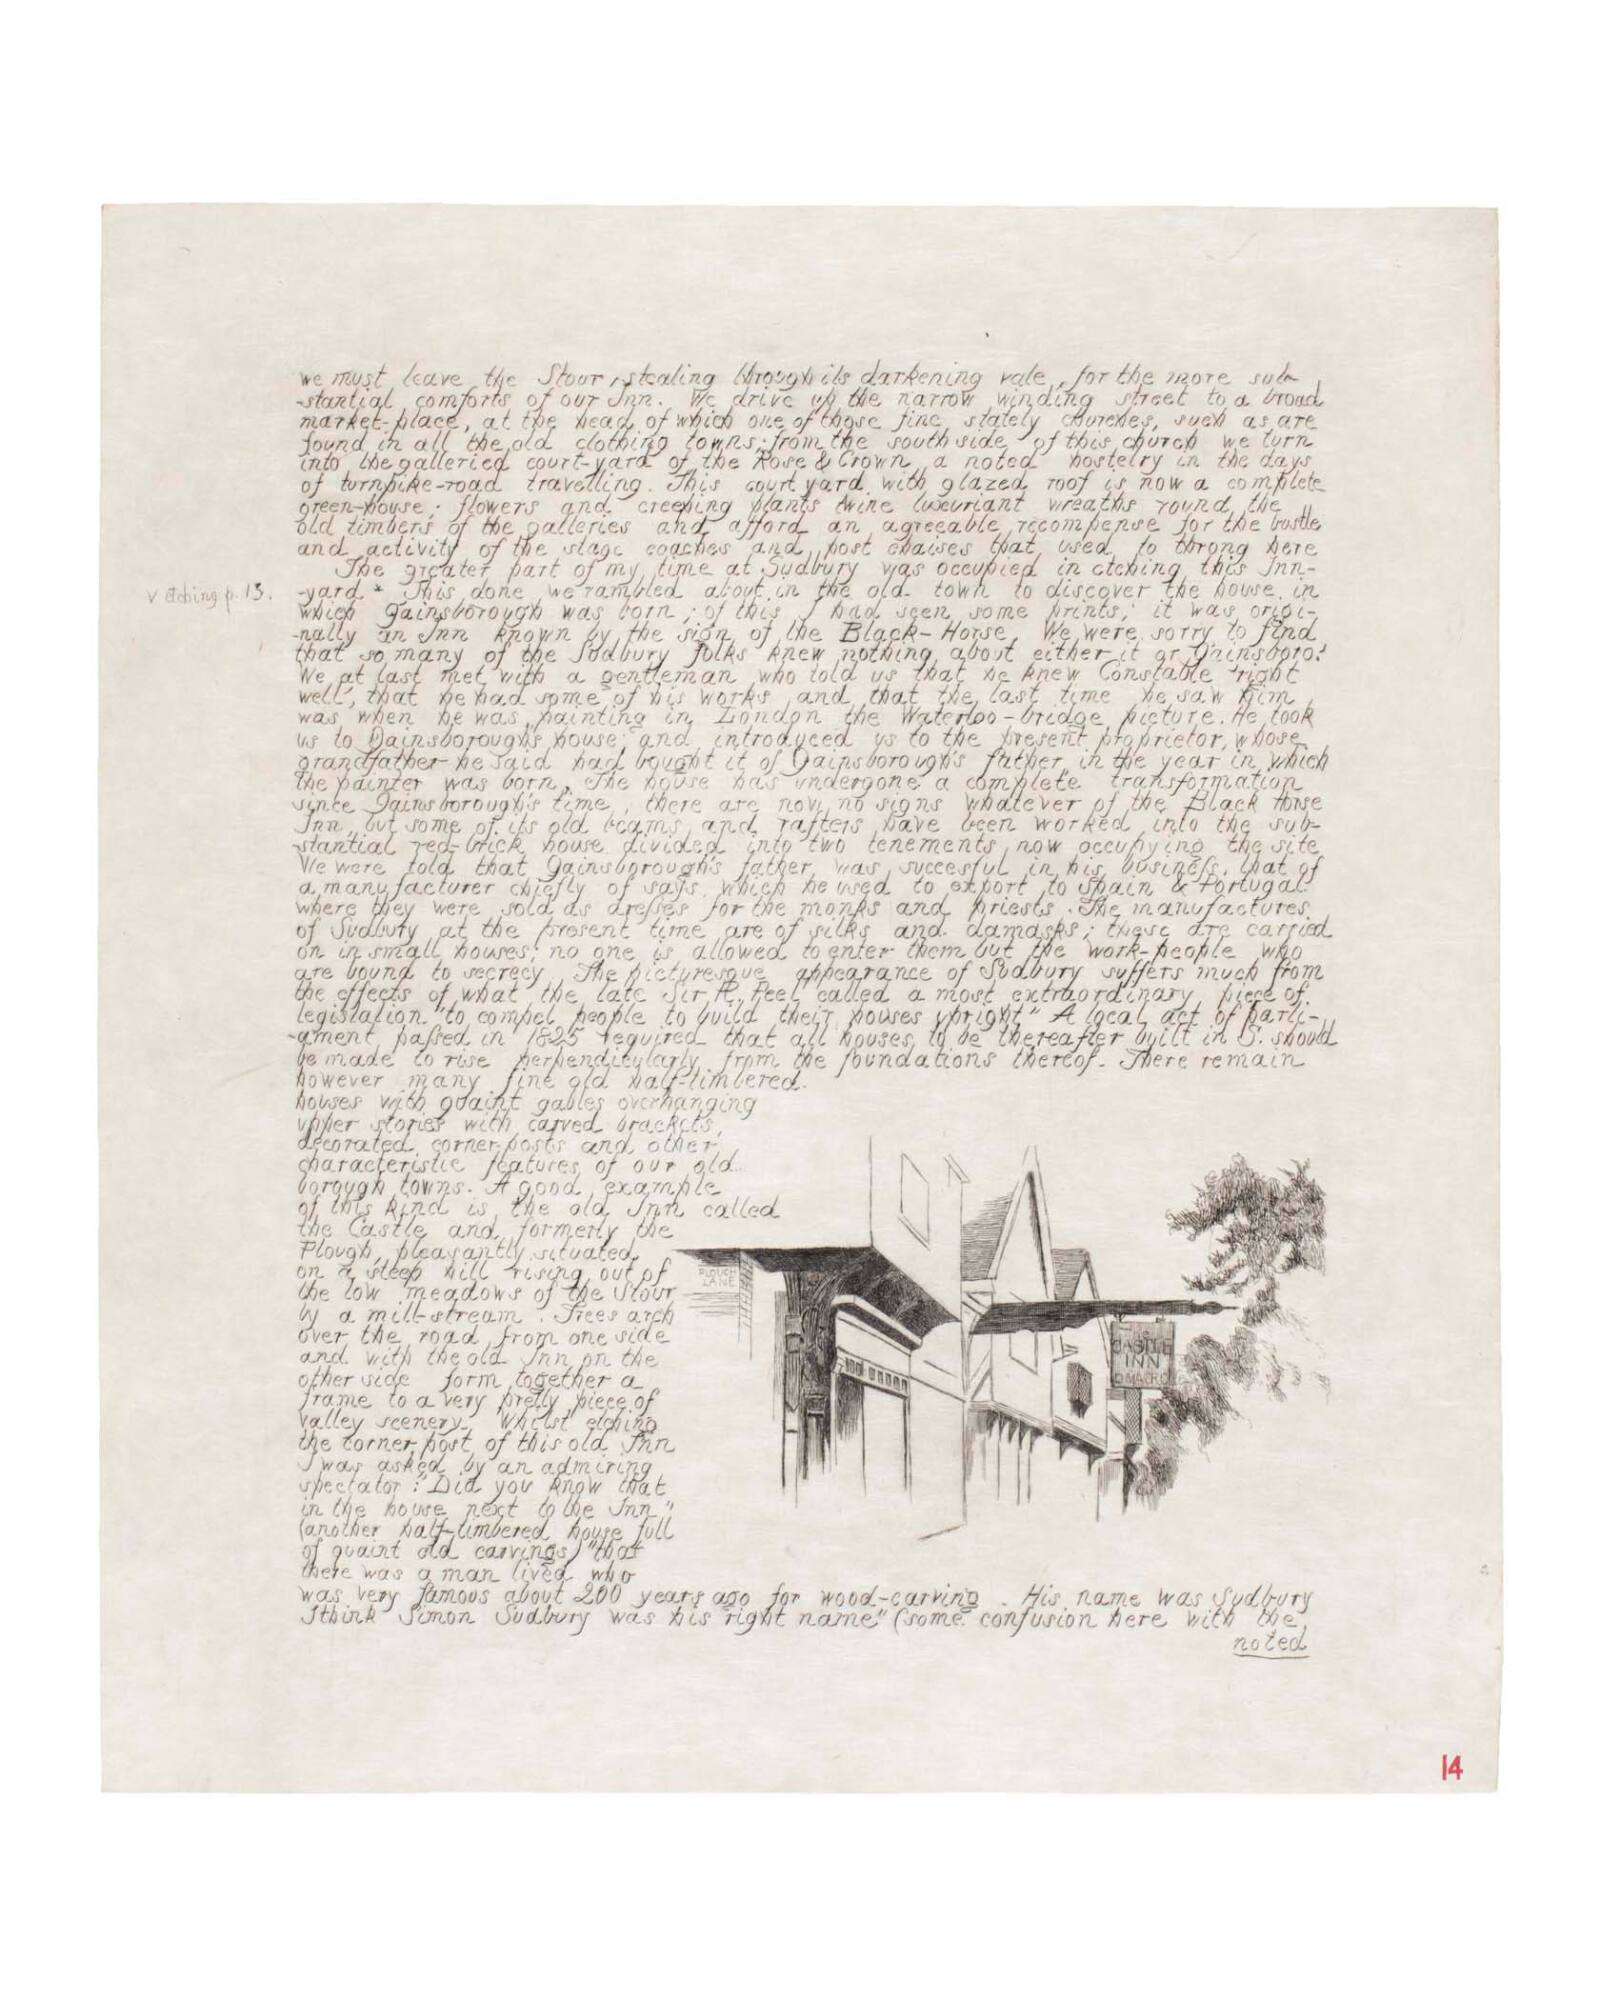 we must leave the Stour, stealing through its darkening vale, for the more sub-
-stantial comforts of our Inn. We drive up the narrow winding street to a broad
market-place, at the head of which one of those fine stately churches, such as are
found in all the old clothing towns; from the south side of this church we turn
into the galleried court-yard of the Rose & Crown, a noted hostelry in the days
of turnpike-road travelling. This court yard with glazed roof is now a complete
green-house; flowers and creeping plants twine luxuriant wreaths round the
old timbers of the galleries and afford an agreeable recompense for the bustle
and activity of the stage coaches and post chaises that used to throng here
The greater part of my time at Sudbury was occupied in etching this Inn-
v etching p. 13.
-yard * This done we rambled about in the old town to discover the house in
which Gainsborough was born; of this I had seen some prints; it was origi-
-nally an Inn known by the sign of the Black-Horse. We were sorry to find
that so many of the Sudbury folks knew nothing about either it or Gainsboro.'
We at last met with a gentleman who told us that he knew Constable "right
well", that he had some of his works and that the last time he saw him
was when he was painting in London the Waterloo-bridge picture. He took
us to Gainsborough's house, and introduced us to the present proprietor, whose
grandfather he said had bought it of Gainsborough's father, in the year in which
the painter was born. The house has undergone a complete transformation
since Gainsborough's time, there are now no signs whatever of the Black Horse
Inn, but some of its old beams and rafters have been worked into the sub-
-stantial red-brick house divided into two tenements now occupying the site
We were told that Gainsborough's father was succesful in his business, that of
a manufacturer chiefly of says, which he used to export to Spain & Portugal
where they were sold as dresses for the monks and priests. The manufactures
of Sudbury at the present time are of silks and damasks; these are carried
on in small houses; no one is allowed to enter them but the work-people who
are bound to secrecy. The picturesque appearance of Sudbury suffers much from
the effects of what the late Sir R. Peel called a most extraordinary piece of
legislation "to compel people to build their houses upright" A local act of parli-
-ament passed in 1825 required that all houses to be thereafter built in S. should
be made to rise perpendicularly from the foundations thereof. There remain
however many fine old half-timbered
houses with quaint gables overhanging
upper stories with carved brackets,
decorated corner-posts and other
characteristic features of our old
borough towns. A good example
of this kind is the old Inn called
the Castle and formerly the
Plough, pleasantly situated
on a steep hill rising out of
the low meadows of the Stour
by a mill-stream. Trees arch
over the road from one side
and with the old Inn on the
other side form together a
frame to a very pretty piece of
valley scenery. Whilst etching
the corner post of this old Inn
I was asked by an admiring
spectator: "Did you know that
in the house next to the Inn"
(another half-timbered house full
of quaint old carvings) "that
there was a man lived who
was very famous about 200 years ago for wood-carving. His name was Sudbury
I think Simon Sudbury was his right name" (some confusion here with the
noted
PLOUGH
LANE
CASTLE
INN
14